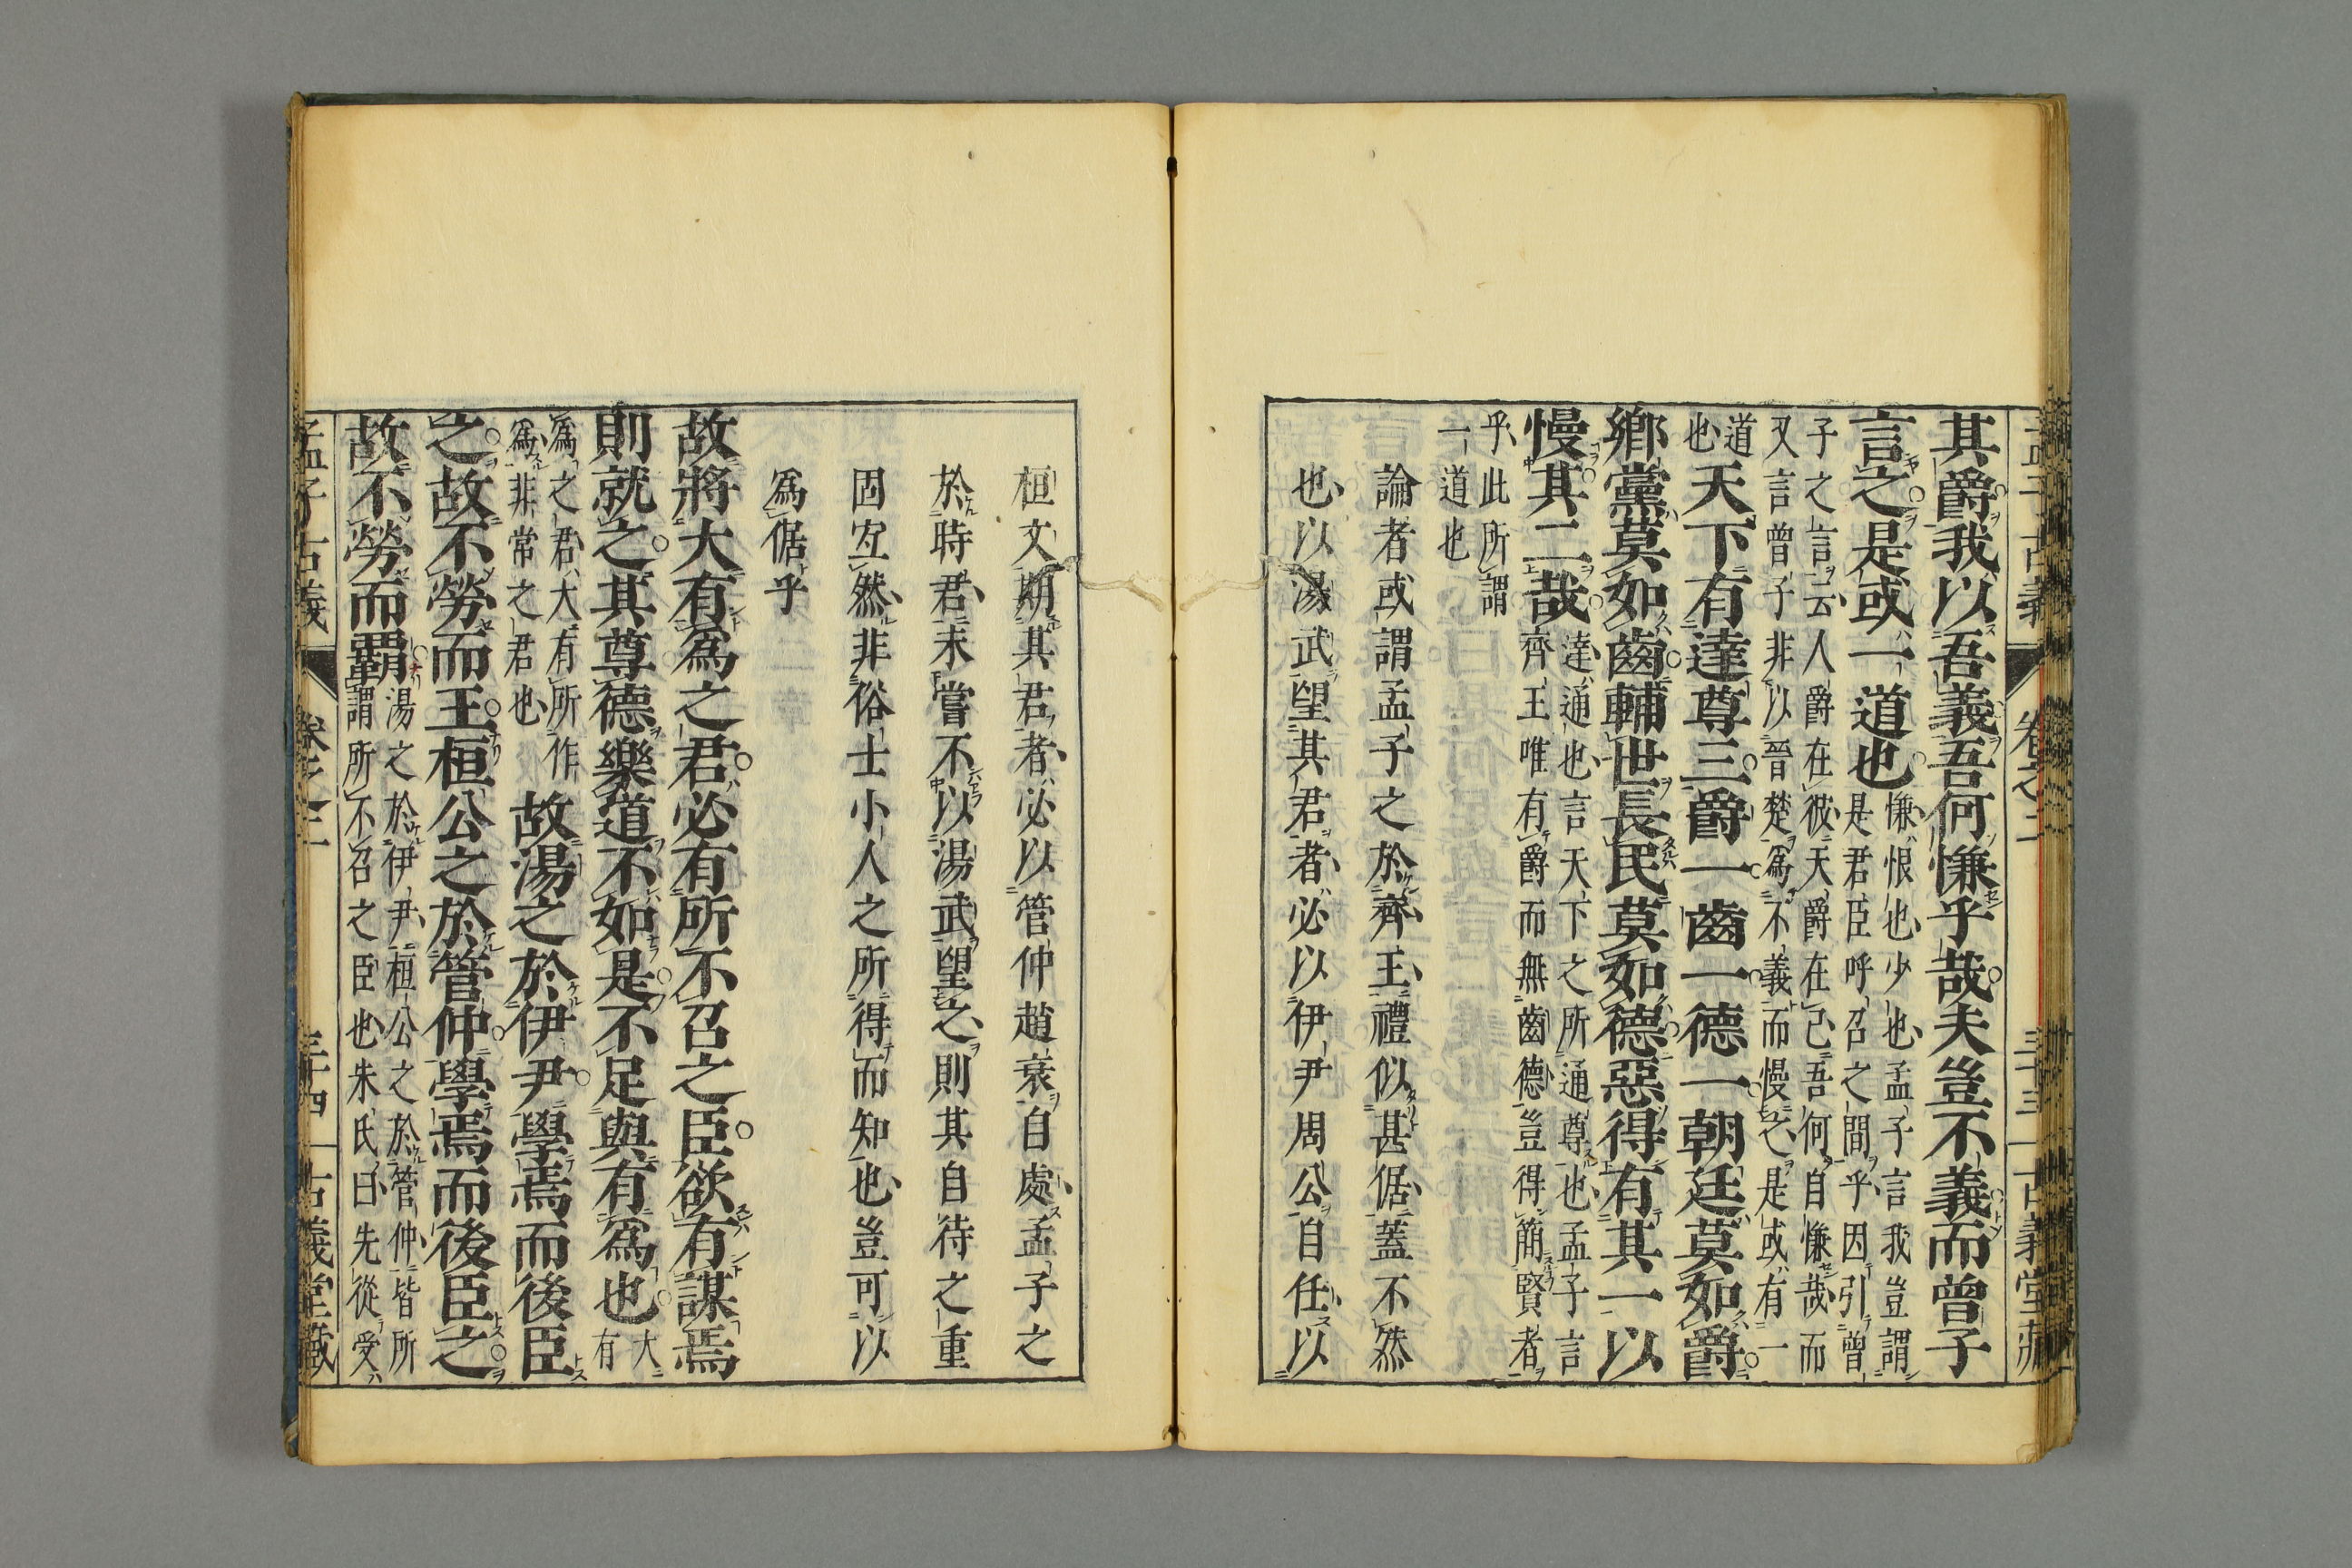 孟子古義 卷之二 三十三 古義堂藏
其爵我以吾義吾何慊乎哉夫豈不義而曾子
言之是或一道也 慊恨也少也孟子言我豈謂
是君臣呼召之間乎因引曾
子之言云人爵在彼天爵在己吾何自慊哉而
又言曾子非以晉楚為不義而慢之是或有一
道
也 天下有達尊三爵一齒一德一朝廷莫如爵
鄉黨莫如齒輔世長民莫如德惡得有其一以
慢其二哉 達通也言天下之所通尊也孟子言
齊王唯有爵而無齒德豈得簡賢者
乎此所謂
一道也
論者或謂孟子之於齊王禮似甚倨蓋不然
也以湯武望其君者必以伊尹周公自任以
桓文期其君者必以管仲趙衰自處孟子之
於時君未嘗不以湯武望之則其自待之重
固宜然非俗士小人之所得而知也豈可以
為倨乎
故將大有為之君必有所不召之臣欲有謀焉
則就之其尊德樂道不如是不足與有為也 大
有
為之君大有所作
為非常之君也 故湯之於伊尹學焉而後臣
之故不勞而王桓公之於管仲學焉而後臣之
故不勞而霸 湯之於伊尹桓公之於管仲皆所
謂所不召之臣也朱氏曰先從受
孟子古義 卷之二 三十四 古義堂藏